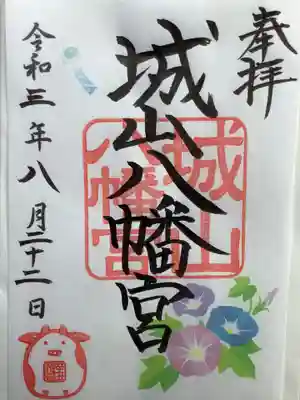 奉拝
城山八幡宮
城山
八幡宮
令和三年八月二十二日